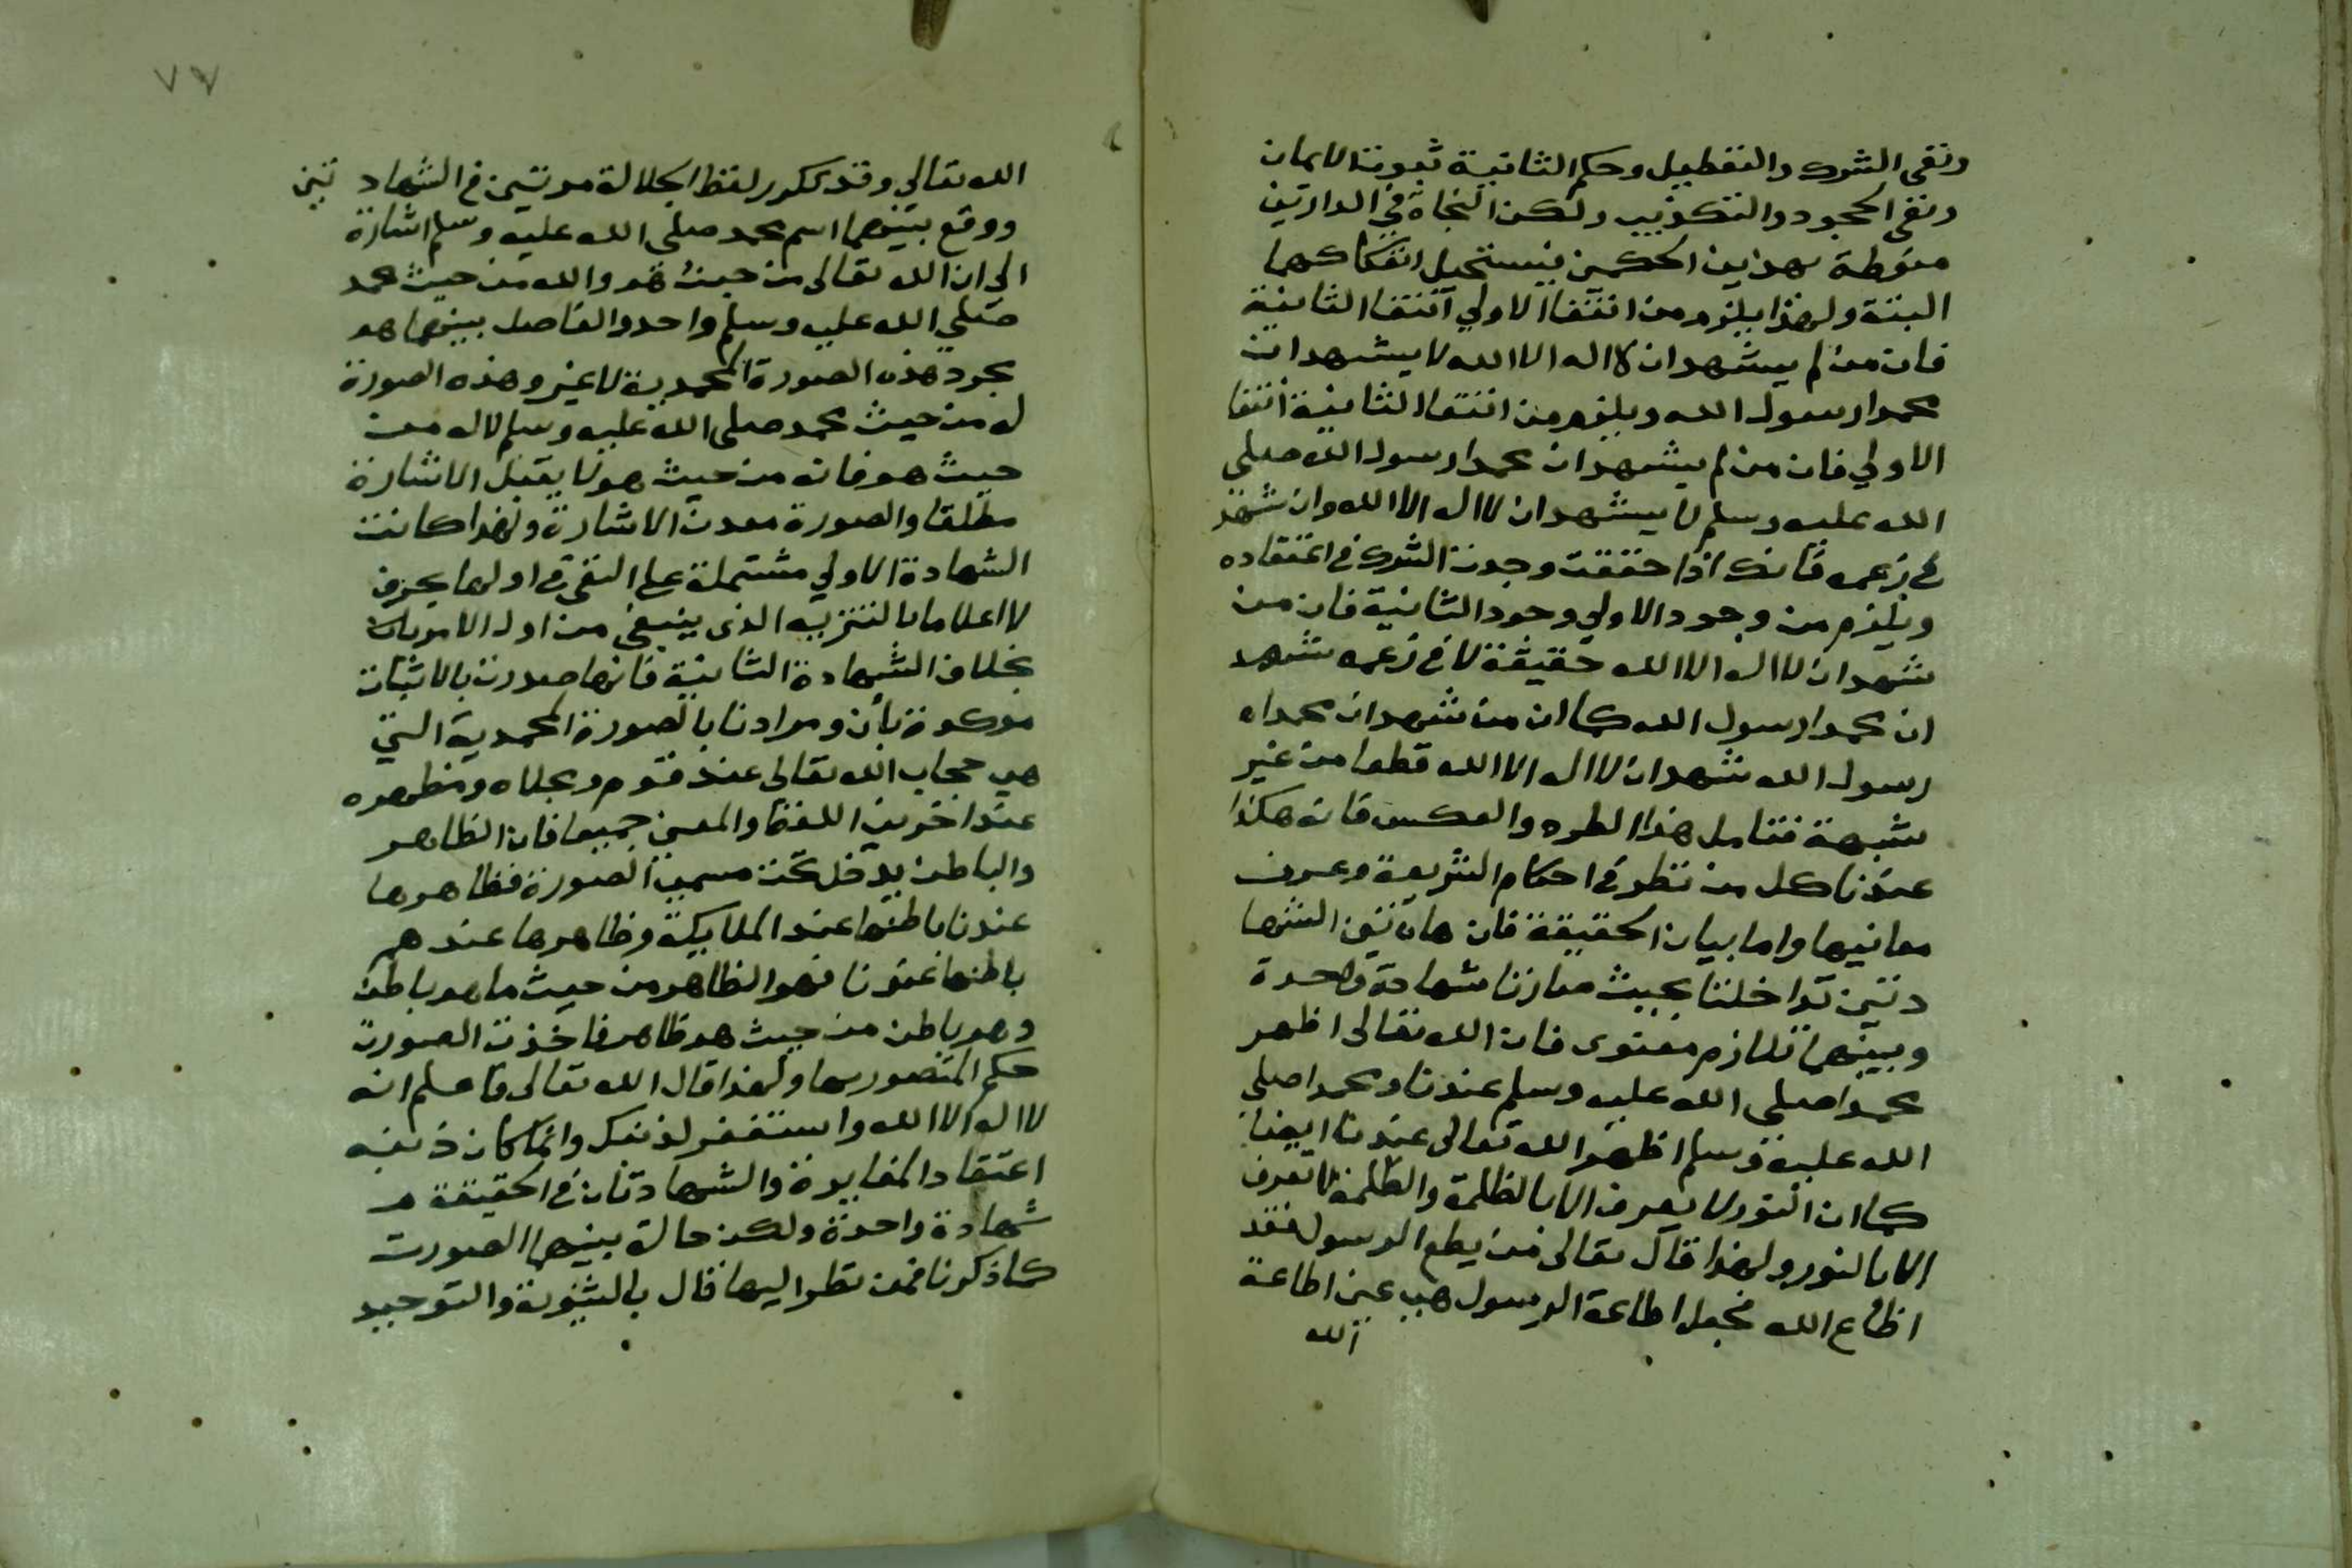 ونفى الشرك والتعطيل وحكم الثانية ثبوت الايمان
ونفى الجحود والتكذيب ولكن النجاة في الدارين
منوطة بهذين الحكمين يستحيل انفكاكهما
البتة ولهذا يلزم من انتفا الاولي انتفا الثانية
فان من لم يشهد ان لا اله الا الله لا يشهد ان
محمدا رسول الله ويلزم من انتفا الثانية انتفا
الاولي فان من لم يشهد ان محمدا رسول الله صلى
الله عليه وسلم لا يشهد ان لا اله الا الله وان شهد
في زعمه فانك اذا حققت وجدت الشرك في اعتقاده
ويلزم من وجود الاولي وجود الثانية فان من
شهد ان لا اله الا الله حقيقة لا في زعمه شهد
ان محمدا رسول الله كما ان من شهد ان محمدا
رسول الله شهد ان لا اله الا الله قطعا من غير
شبهة فتامل هذا الطرد والعكس فانه هكذا
عندنا كل من نظر في احكام الشريعة وعرف
معانيها واما بيان الحقيقة فان هاتين الشها
دتين تداخلتا بحيث صارتا شهادة واحدة
وبينهما تلازم معنوى فان الله تعالى اظهر
محمدا صلى الله عليه وسلم عندنا ومحمدا صلى
الله عليه وسلم اظهر الله تعالى عندنا ايضا
كما ان النور لا يعرف الا بالظلمة والظلمة لا تعرف
الا بالنور ولهذا قال تعالى من يطع الرسول فقد
اطاع الله فجعل اطاعة الرسول هي عين اطاعة
الله
٧٧
الله تعالي وقد تكرر لفظ الجلالة مرتين في الشهادتين
ووقع بينهما اسم محمد صلى الله عليه وسلم اشارة
الى ان الله تعالى من حيث هو والله من حيث محمد
صلي الله عليه وسلم واحد والفاصل بينهما هو
مجرد هذه الصورة المحمدية لا غير وهذه الصورة
له من حيث محمد صلى الله عليه وسلم لا له من
حيث هو فانه من حيث هو لا يقبل الاشارة
مطلقا والصورة معدن الاشارة ولهذا كانت
الشهادة الاولي مشتملة على النفي في اولها بحرف
لا اعلاما بالتنزيه الذى ينبغي من اول الامر
بخلاف الشهادة الثانية فانها صدرت بالاثبات
موكدة بأن ومرادنا بالصورة المحمدية التي
هي حجاب الله تعالى عند قوم ومجلاه ومظهره
عند اخرين اللفظ والمعنى جميعا فان الظاهر
والباطن يدخل تحت مسمى الصورة فظاهرها
عندنا باطنها عند الملايكة وظاهرها عندهم
باطنها عندنا فهو الظاهر من حيث ما هو باطن
وهو باطن من حيث هو ظاهر فاخذت الصورة
حكم المتصور بها ولهذا قال الله تعالى فاعلم انه
لا اله الا الله واستغفر لذنبك وانما كان ذنبه
اعتقاد المغايرة والشهادتان في الحقيقة
شهادة واحدة ولكن حالة بينهما الصورت
كما ذكرنا فمن نظر اليها قال بالثنوية والتوحيد